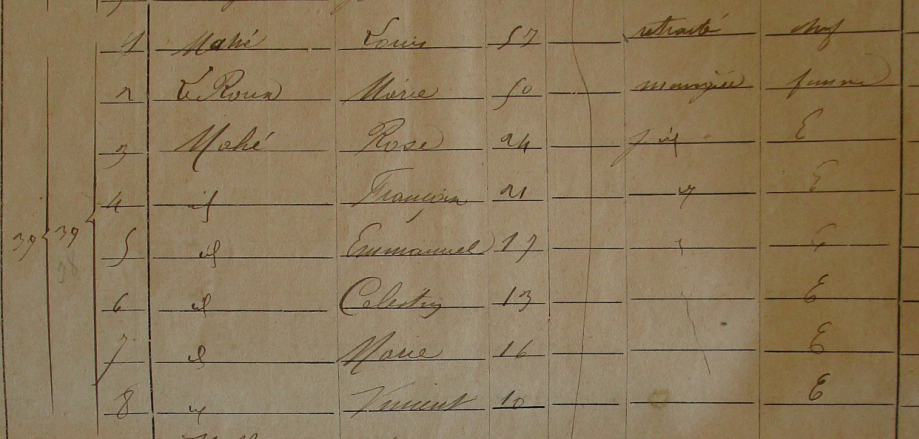 1 Mahé Louis 57 retraité chef
2 Le Roux Marie 50 ménagère femme
3 Mahé Rose 24 id E
4 id 21 E
39 39 38
5 id Emmanuel E
6 id Celestin 13 E
7 id Marie 16 E
8 Vincent 10 E